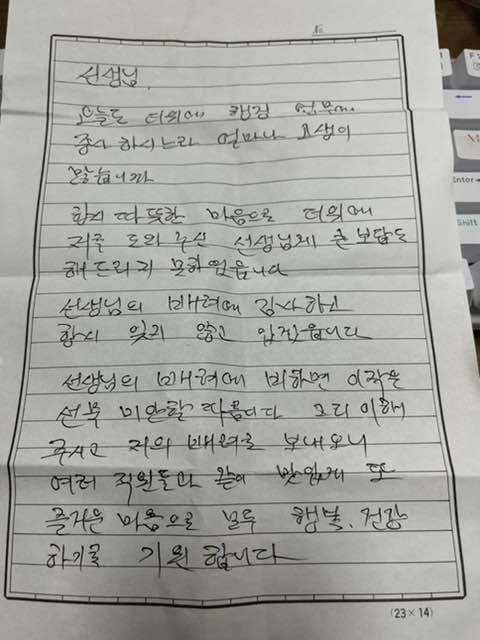 No
선생님.
오늘도 더위에 행정 업무에
종사 하시느라 얼마나 고생이
많습니까
항시 따뜻한 마음으로 더위에
저를 도와 주신 선생님께 큰 보답도
해드리지 못하였읍니다
선생님의 배려에 감사하고
항시 잊지 않고 있겠읍니다
선생님의 배려에 비하면 이작은
선물 미안할 따름니다 그리 이해
주시고 저의 배려를 보내오니
여러 직원들과 같이 맛있게 또
즐거운 마음으로 모두 행복, 건강
하기를 기원 합니다
(23×14)
Enter
Shift